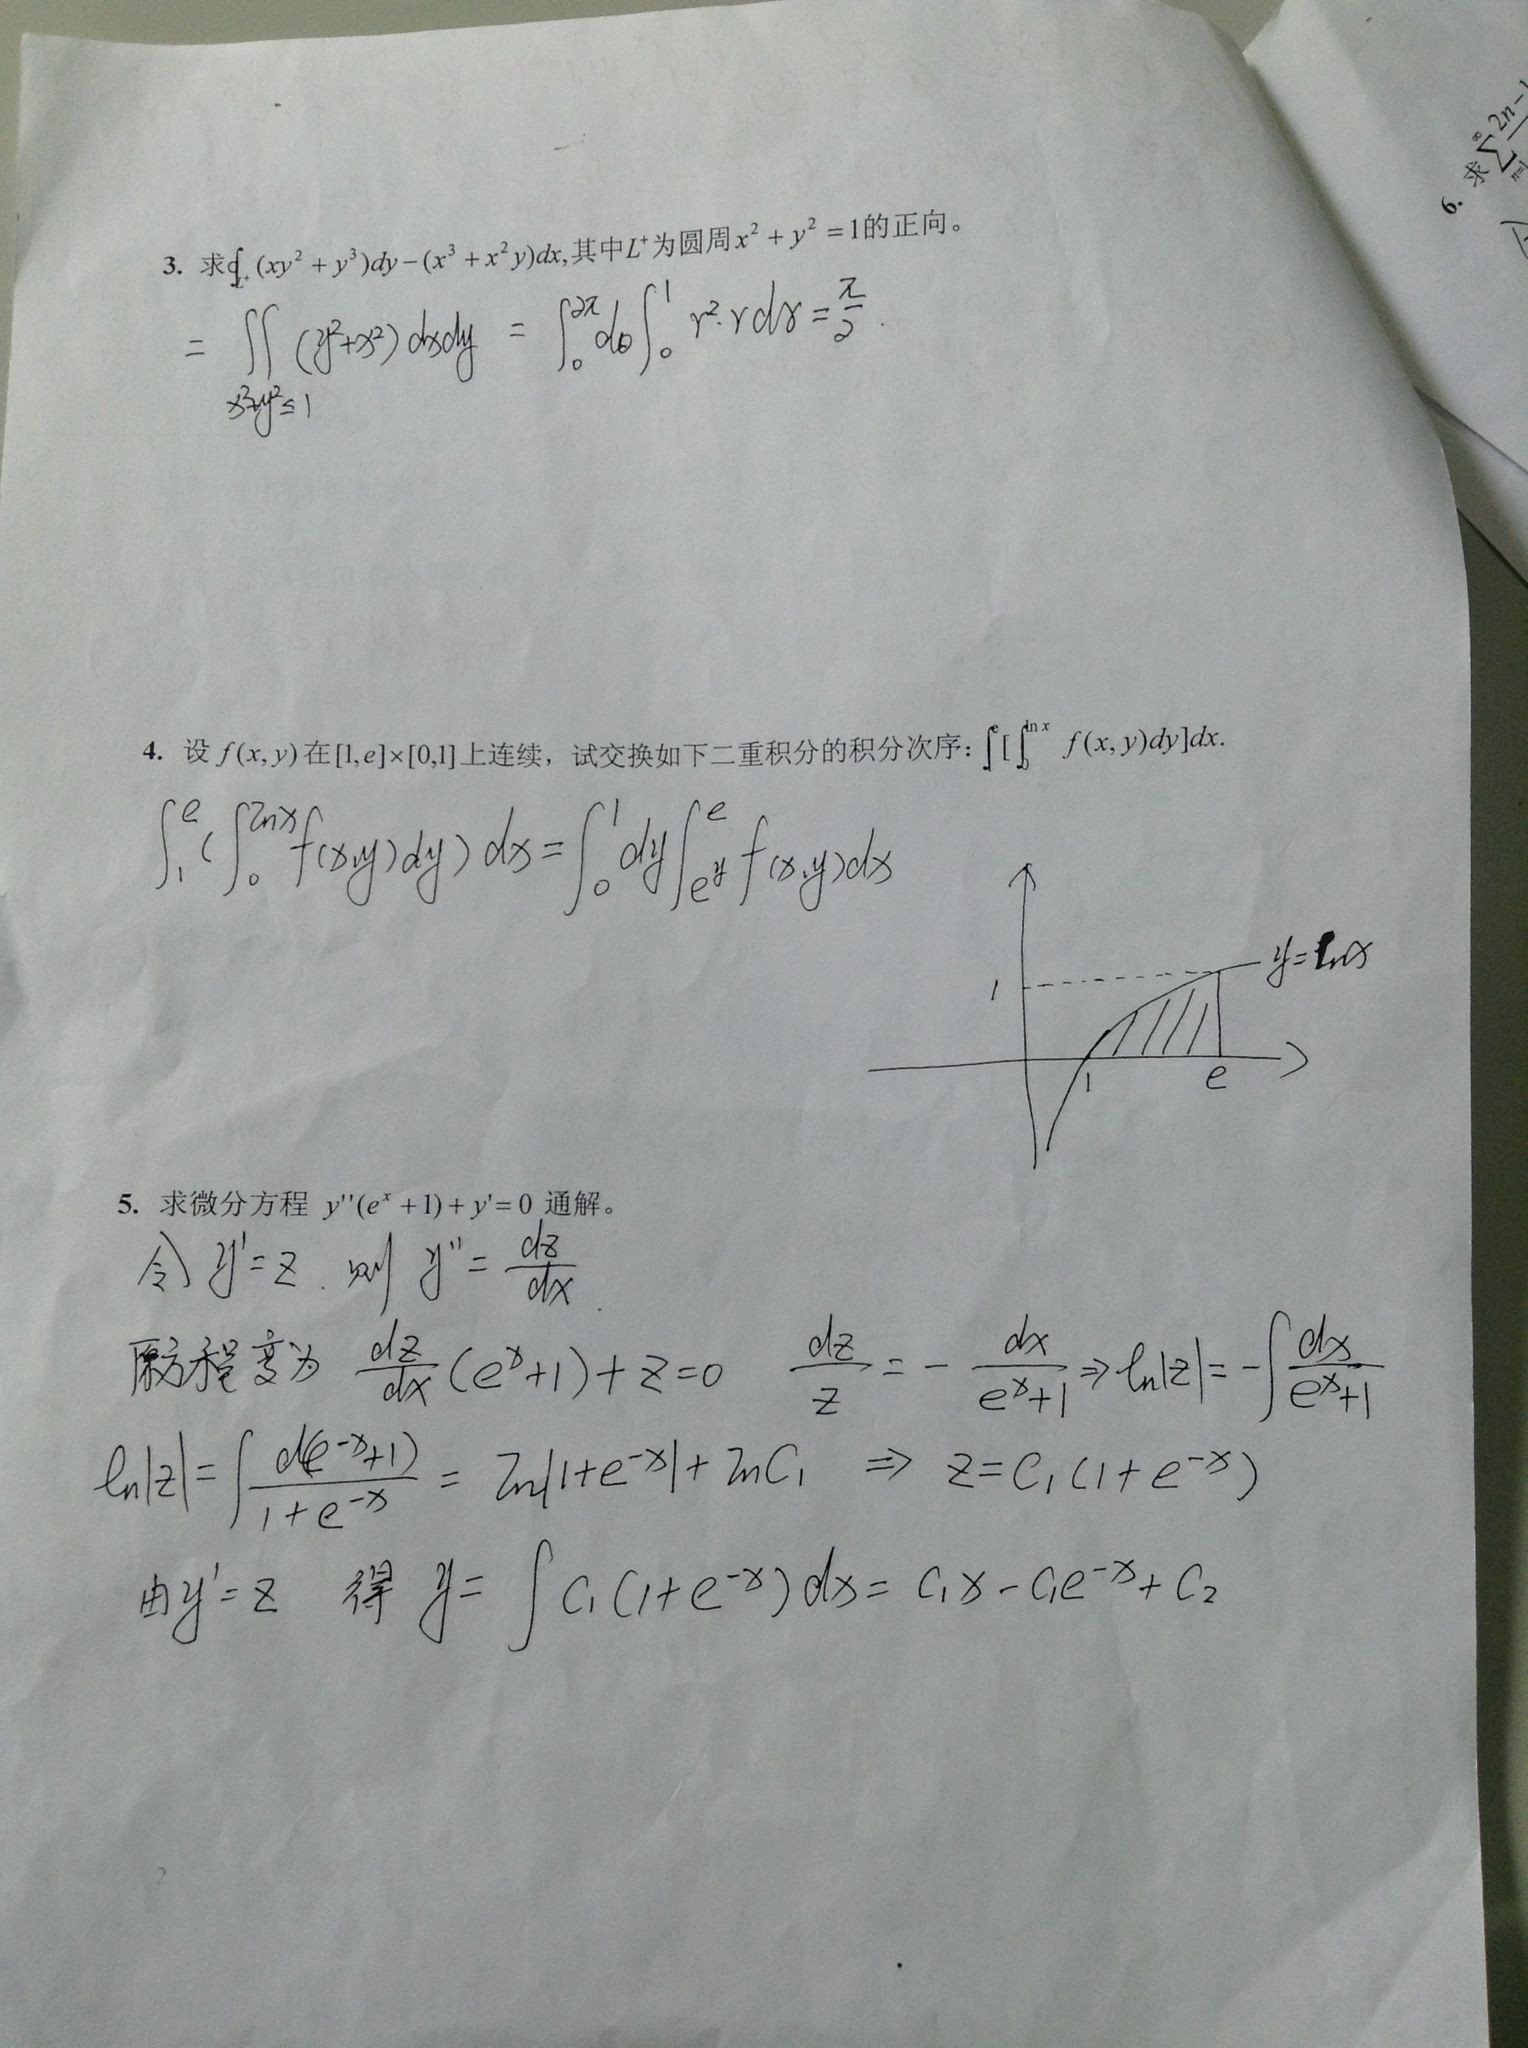 3. 求∮_{L⁺}(xy²+y³)dy−(x³+x²y)dx,其中L⁺为圆周x²+y²=1的正向。
= ∬_{x²+y²≤1} (y²+x²) dxdy = ∫₀^{2π} dθ ∫₀¹ r²·r dr = π/2.
4. 设 f(x,y) 在[1,e]×[0,1]上连续，试交换如下二重积分的积分次序：∫₁^e[∫₀^{ln x} f(x,y)dy]dx.
∫₁^e (∫₀^{lnx} f(x,y)dy) dx = ∫₀¹ dy ∫_{e^y}^e f(x,y)dx
y=lnx
1
1 e
5. 求微分方程 y''(eˣ+1)+y'=0 通解。
令 y'=z. 则 y''= dz/dx.
原方程变为 dz/dx (eˣ+1)+z=0 dz/z = − dx/(eˣ+1) ⇒ ln|z|= −∫ dx/(eˣ+1)
ln|z|= ∫ d(e⁻ˣ+1)/(1+e⁻ˣ) = ln|1+e⁻ˣ|+lnC₁ ⇒ z=C₁(1+e⁻ˣ)
由y'=z 得 y= ∫ C₁(1+e⁻ˣ)dx= C₁x−C₁e⁻ˣ+C₂
2
6. 求 ∑_{n=1}^∞ 2n−1